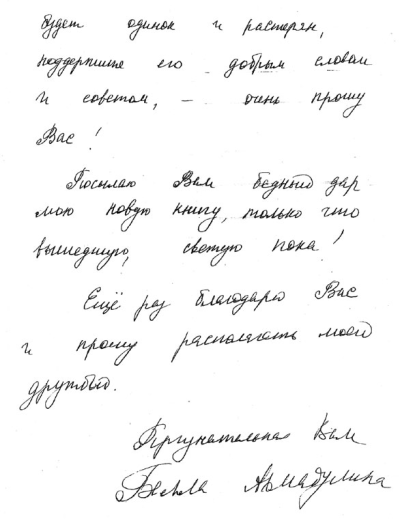 будет одинок и растерян,
поддержите его добрым словом
и советом, – очень прошу
Вас!
Посылаю Вам бедный дар
мою новую книгу, только что
вышедшую, светую пока!
Ещё раз благодарю Вас
и прошу располагать моей
дружбой.
Признательная Вам
Белла Ахмадулина